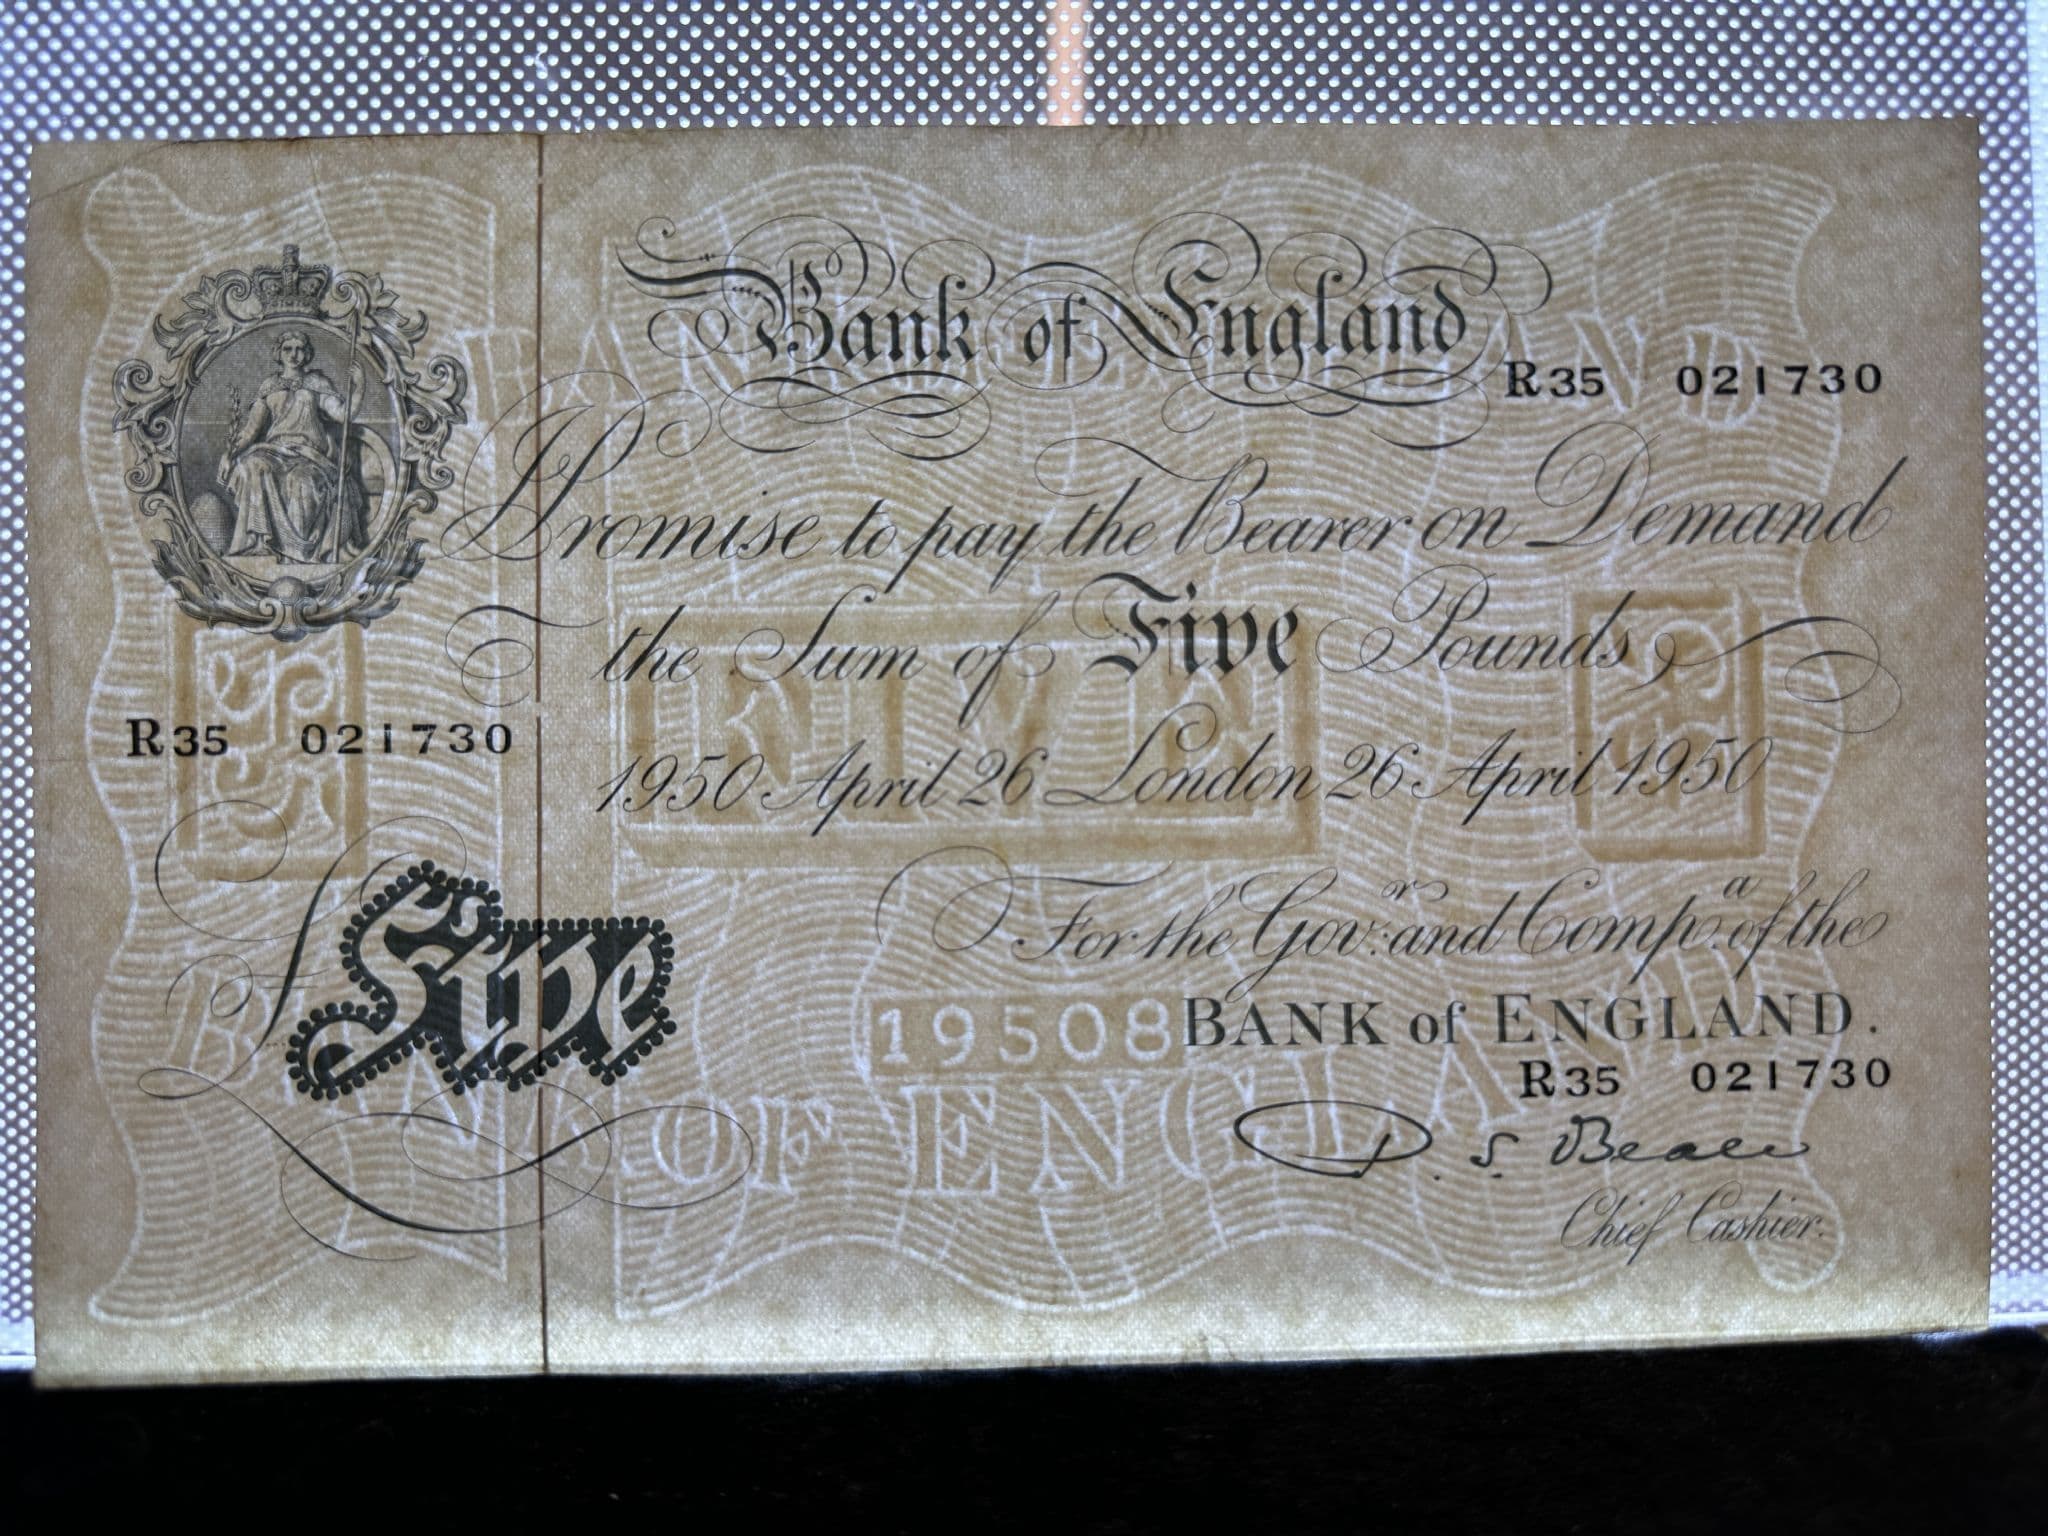 Bank of England
R35 021730
I Promise to pay the Bearer on Demand
the Sum of Five Pounds
R35 021730
1950 April 26 London 26 April 1950
For the Gov.r and Comp.a of the
Five
19508
BANK of ENGLAND.
R35 021730
BANK OF ENGLAND
D. S. Beale
Chief Cashier.